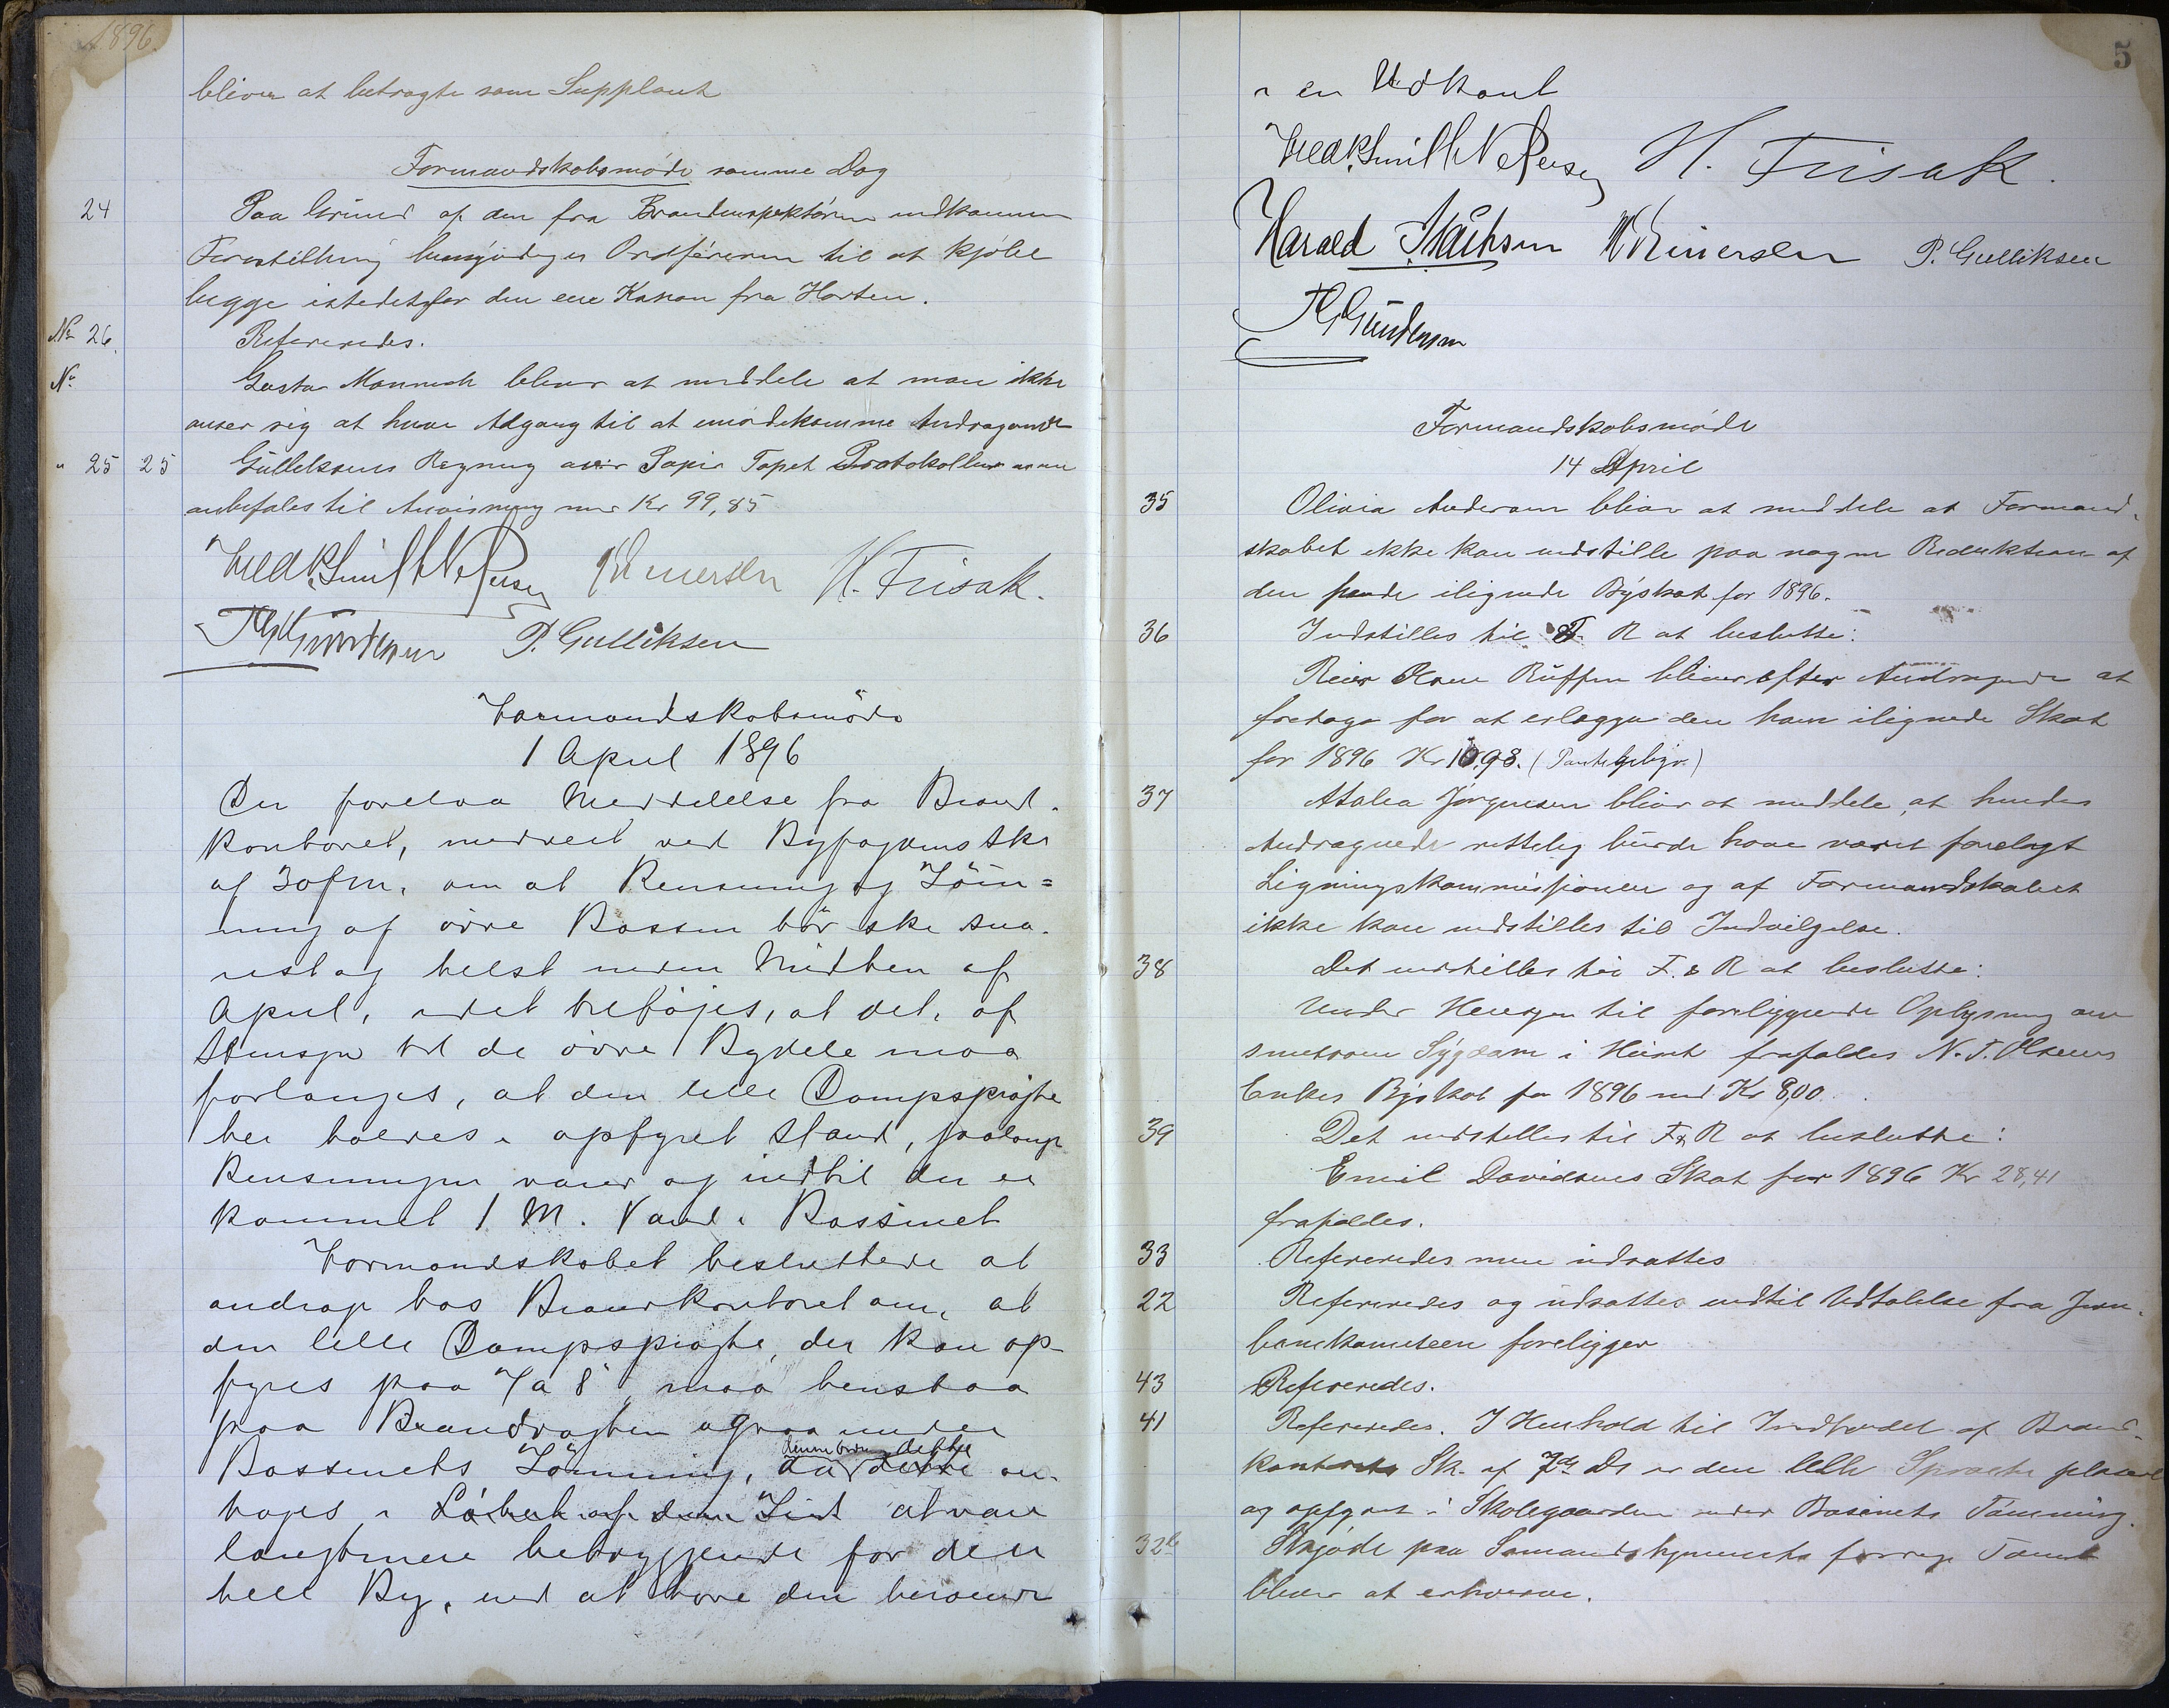 1896.
bliver at betragte som Suppleant
Formandskabsmøde samme Dag
24 Paa Grund af den fra Brandinspektøren indkomne
Forestilling bemyndiges Ordføreren til at kjøbe
begge istedetfor den ene Kanon fra Horten.
No 26. Refereredes.
No Gustav Mannich bliver at meddele at man ikke
anser sig at have Adgang til at imødekomme Andragendet
" 25 25 Gulliksens Regning over Papir Tapet Protokoller m.m
anbefales til Anvisning med Kr 99,85
Fredk Smith Petersen H. Frisak.
P. Gulliksen
Formandskabsmøde
1 April 1896
Der forelaa Meddelelse fra Brand-
kontoret, modtaget ved Byfogdens Skr
af 30 f.m. om at Rensning og Tøm=
ning af øvre Bassin bør ske sna-
rest og helst inden Midten af
April, idet tilføjes, at det, af
Hensyn til de øvre Bydele maa
forlanges, at den lille Dampsprøjte
her holdes i opfyret Stand, saalænge
Rensningen varer og indtil der er
kommet 1 M. Vand i Bassinet
Formandskabet besluttede at
andrage hos Brandkontoret om, at
den lille Dampsprøjte, der kan op-
fyres paa 7 a 8", maa henstaa
paa Brandvagten ogsaa under
Bassinets Tømning, da dette an-
tages i at være
langt mere betryggende for den
hele By, end at have den henstaaende
5
i en Udkant
Fredk Smith Petersen H. Frisak.
Harald Isachsen P. Gulliksen
Formandskabsmøde
14 April
35 Olivia Andersen bliver at meddele at Formand-
skabet ikke kan indstille paa nogen Reduktion af
den hende ilignede Byskat for 1896.
36 Indstilles til F & R at beslutte:
Reier Olsen Buffen bliver efter Andragende at
fritage for at erlægge den ham ilignede Skat
for 1896 Kr 10.98.
37 Atalea Jørgensen bliver at meddele, at hendes
Andragende rettelig burde have været forelagt
Ligningskommissionen og af Formandskabet
ikke kan indstilles til Indvilgelse.
38 Det indstilles til F. & R at beslutte:
Under Hensyn til foreliggende Oplysning om
smitsom Sygdom i Huset frafaldes N. T. Olsens
Enkes Byskat for 1896 med Kr 8,00.
39 Det indstilles til F & R at beslutte:
Emil Davidsens Skat for 1896 Kr 28,41
frafaldes.
33 Refereredes men udsattes
22 Refereredes og udsattes indtil Udtalelse fra Jern-
banekomiteen foreligger
43 Refereredes.
41 Refereredes. I Henhold til Indholdet af Brand-
kontorets Sk. af 7de Ds er den lille Sprøite placeret
og opfyret i Skolegaarden under Basinets Tømming.
32b Skjøde paa Sømandshjemmets forrige Tomt
bliver at erhverve.